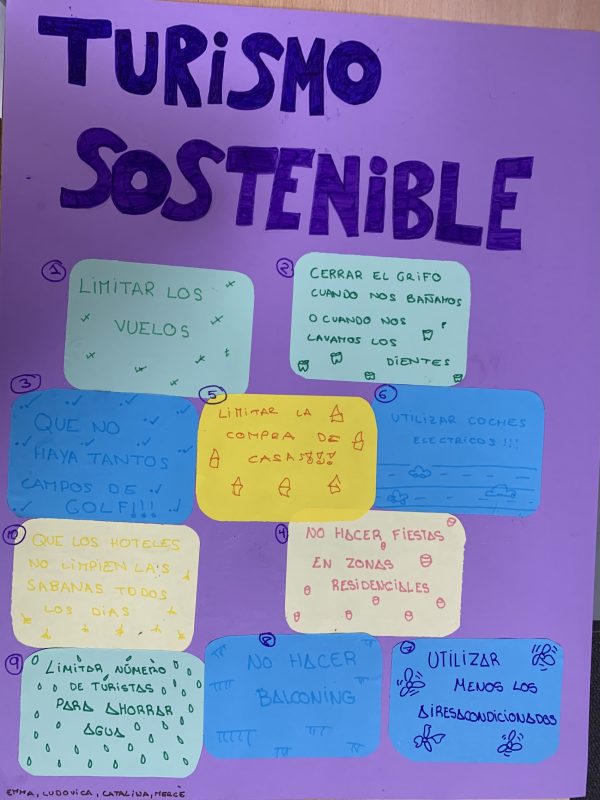 TURISMO
SOSTENIBLE
1
LIMITAR LOS
VUELOS
2
CERRAR EL GRIFO
CUANDO NOS BAÑAMOS
O CUANDO NOS
LAVAMOS LOS
DIENTES
3
QUE NO
HAYA TANTOS
CAMPOS DE
GOLF!!!
5
LIMITAR LA
COMPRA DE
CASA!!!
6
UTILIZAR COCHES
ELECTRICOS!!!
10
QUE LOS HOTELES
NO LIMPIEN LAS
SABANAS TODOS
LOS DIAS
4
NO HACER FIESTAS
EN ZONAS
RESIDENCIALES
9
LIMITAR NÚMERO
DE TÚRISTAS
PARA AHORRAR
AGUA
8
NO HACER
BALCONING
7
UTILIZAR
MENOS LOS
AIRESACONDICIONADOS
EMMA, LUDOVICA, CATALINA, MERCÈ